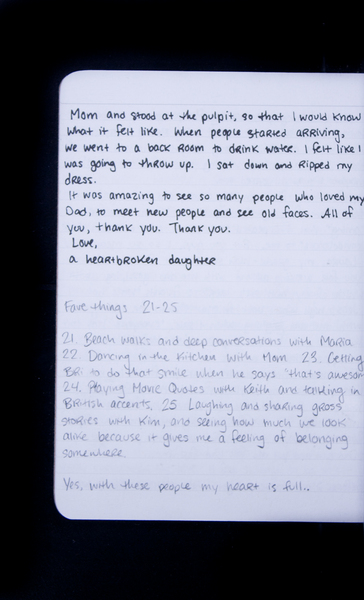 Mom and stood at the pulpit, so that I would know
what it felt like. When people started arriving,
we went to a back room to drink water. I felt like I
was going to throw up. I sat down and ripped my
dress.
It was amazing to see so many people who loved my
Dad, to meet new people and see old faces. All of
you, thank you. Thank you.
Love,
a heartbroken daughter
Fave things 21-25
21. Beach walks and deep conversations with Maria
22. Dancing in the kitchen with Mom 23. Getting
Bri to do that smile when he says "that's awesom
24. Playing Movie Quotes with Keith and talking in
British accents, 25. Laughing and sharing gross
stories with Kim, and seeing how much we look
alike because it gives me a feeling of belonging
somewhere.
Yes, with these people my heart is full..